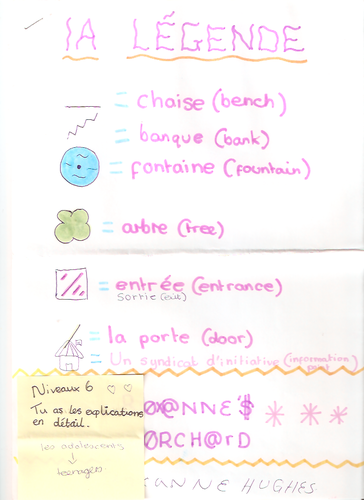 lA LÉGENDE
= chaise (bench)
= banque (bank)
= fontaine (fountain)
= arbre (tree)
= entrée (entrance)
Sortie (exit)
= la porte (door)
= Un syndicat d'initiative (information point)
Niveaux 6
Tu as les explications
en détail.
les adolescents
↓
teenagers
Ø@NNE'$ * * *
ØRCH@rD
ANNE HUGHES